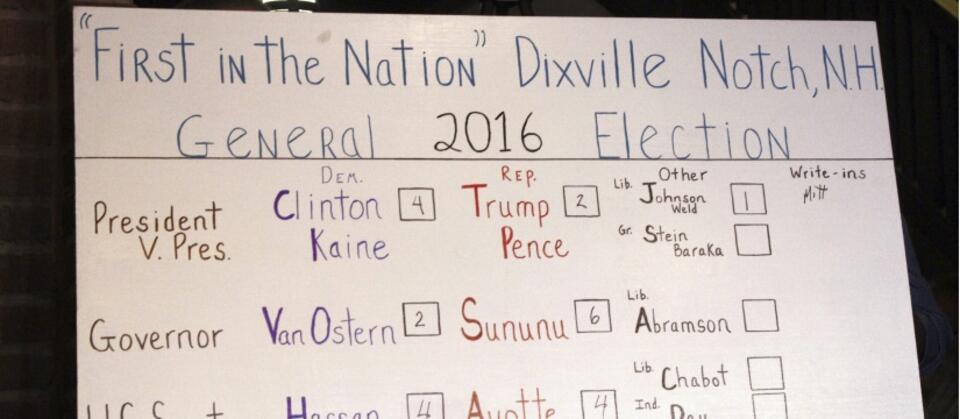 "First in the Nation" Dixville Notch, N.H.
General 2016 Election
Dem. Rep. Other Write-ins
President Clinton 4 Trump 2 Lib. Johnson 1 Mitt
Weld
V. Pres. Kaine Pence Gr. Stein
Baraka
Governor Van Ostern 2 Sununu 6 Lib. Abramson
Lib. Chabot
Hassan 4 Ayotte 4 Ind.